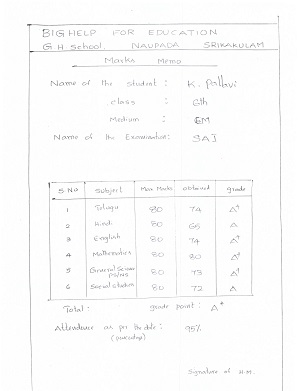 BIGHELP FOR EDUCATION
G.H. School, NAUPADA SRIKAKULAM
Marks Memo
Name of the student : K. Pallavi
class : 6th
Medium : EM
Name of the Examination: SA I
S.No Subject Max Marks obtained grade
1 Telugu 80 74 A+
2 Hindi 80 65 A
3 English 80 74 A+
4 Mathematics 80 80 A+
5 General Science PS/NS 80 73 A+
6 Social studies 80 72 A
Total : grade point : A+
Attendance as per the date : 95%
Signature of H.M.